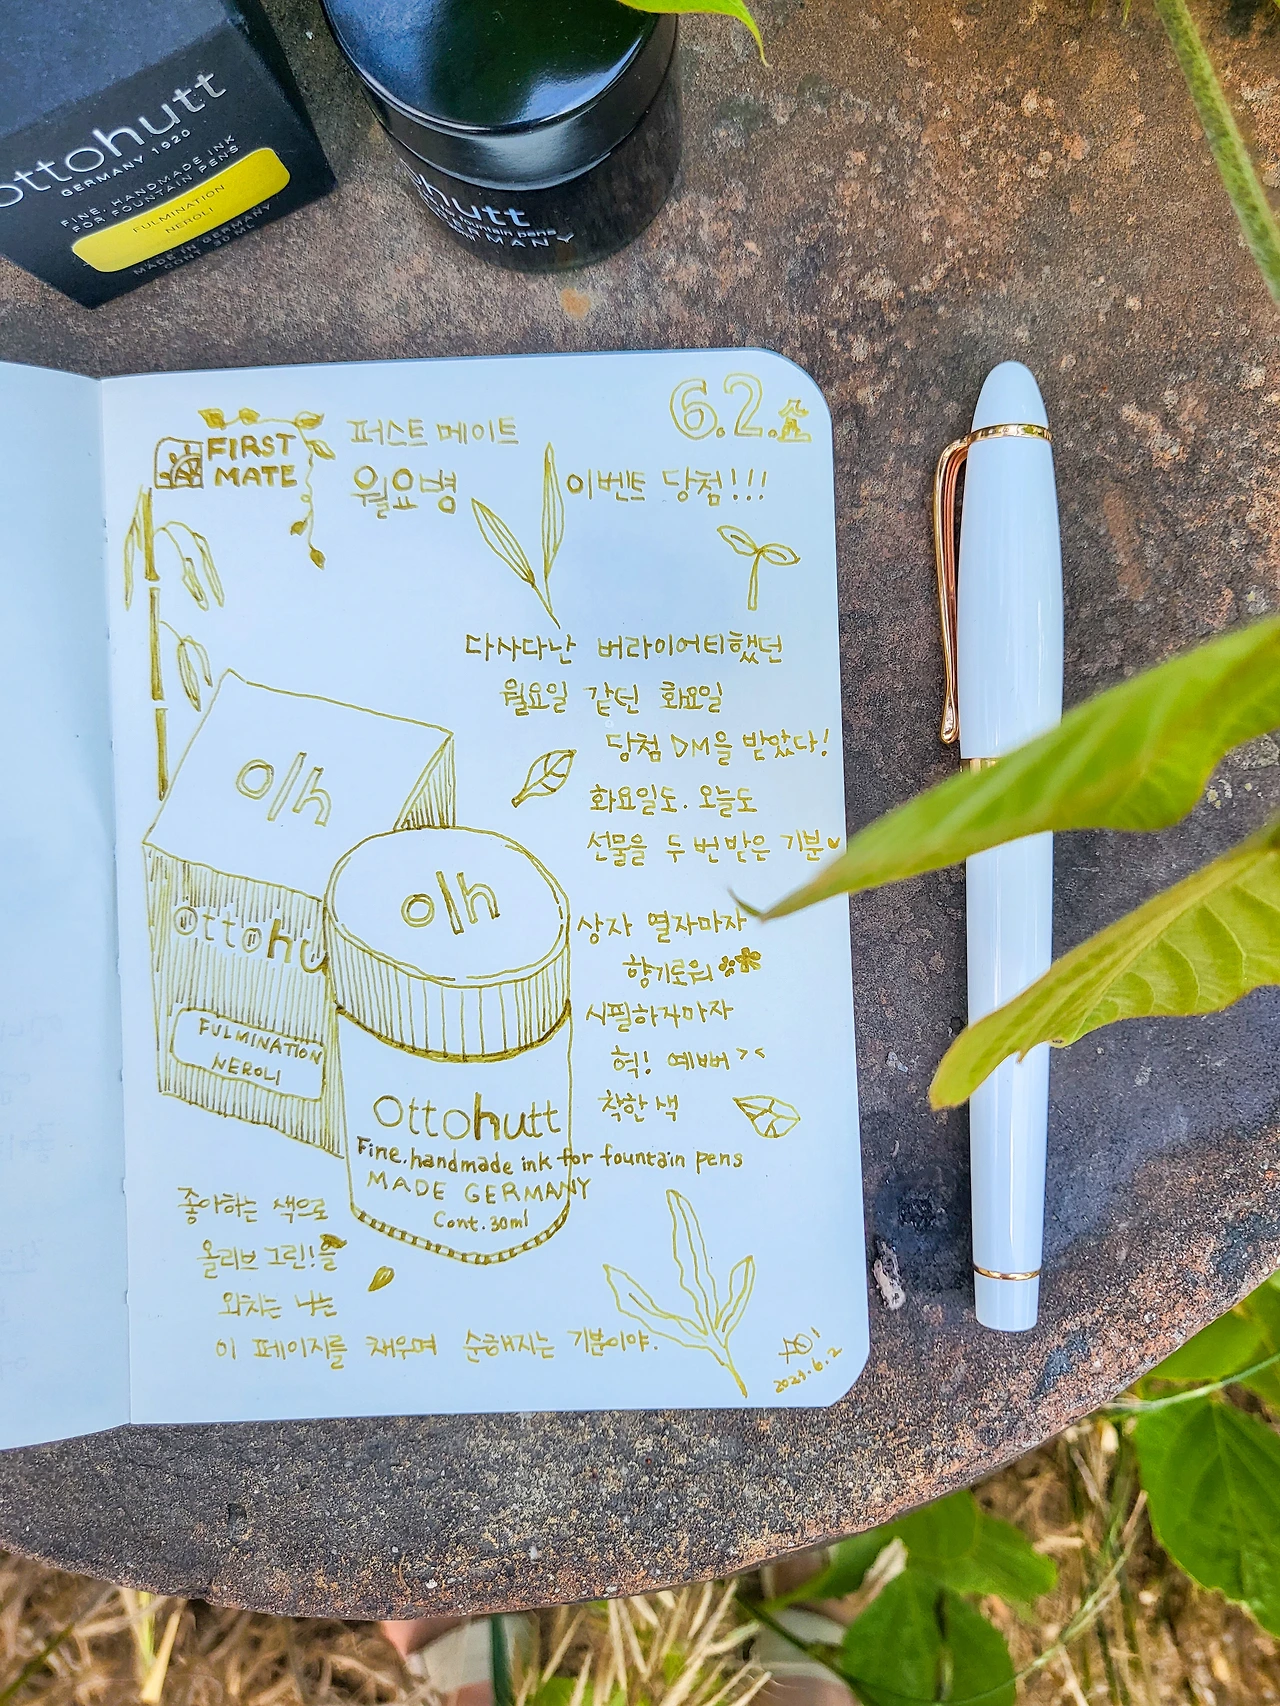 ottohutt
GERMANY 1920
FINE. HANDMADE INK
FOR FOUNTAIN PENS
FULMINATION
NEROLI
MADE IN GERMANY
CONT. 30 ML
ohutt
for fountain pens
GERMANY
6.2.金
FIRST
MATE
퍼스트 메이트
월요병 이벤트 당첨!!!
다사다난 버라이어티했던
월요일 같던 화요일
당첨 DM을 받았다!
화요일도. 오늘도
선물을 두 번 받은 기분♥
상자 열자마자
향기로워
시필하자마자
헉! 예뻐 ><
착한 색
olh
olh
ottohu
FULMINATION
NEROLI
Ottohutt
Fine.handmade ink for fountain pens
MADE GERMANY
Cont. 30ml
좋아하는 색으로
올리브 그린!을
외치는 나는
이 페이지를 채우며 순해지는 기분이야.
6.2